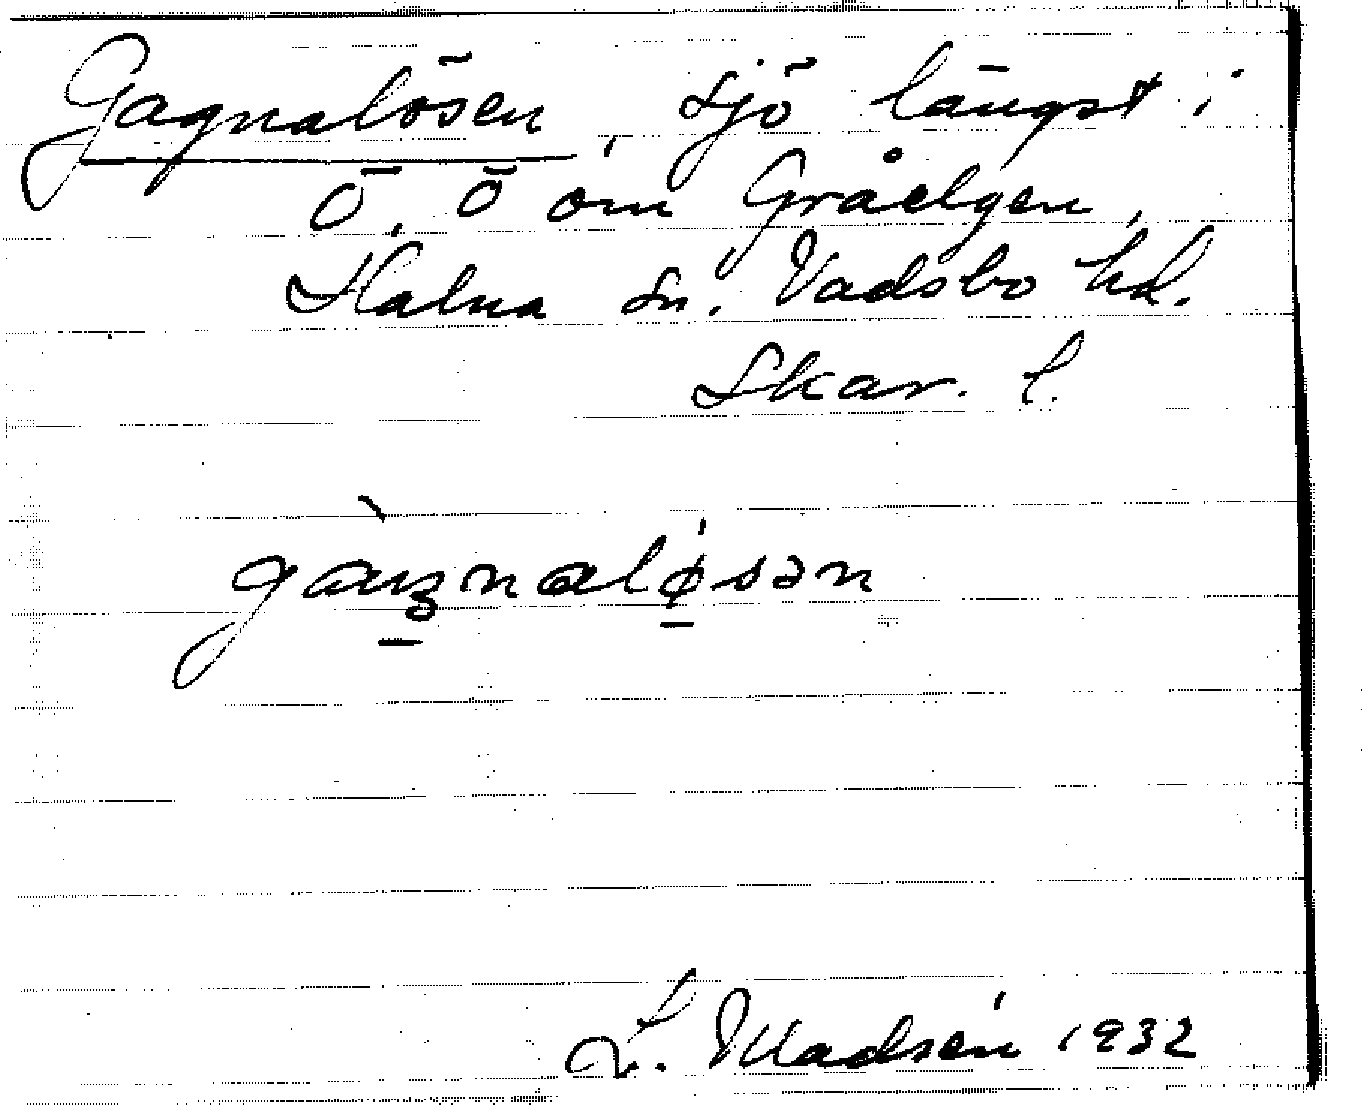 Gagnalösen, sjö längst i
Ö, Ö om Gråelgen,
Halna sn. Vadsbo hd.
Skar. l.
L. Madsén 1932